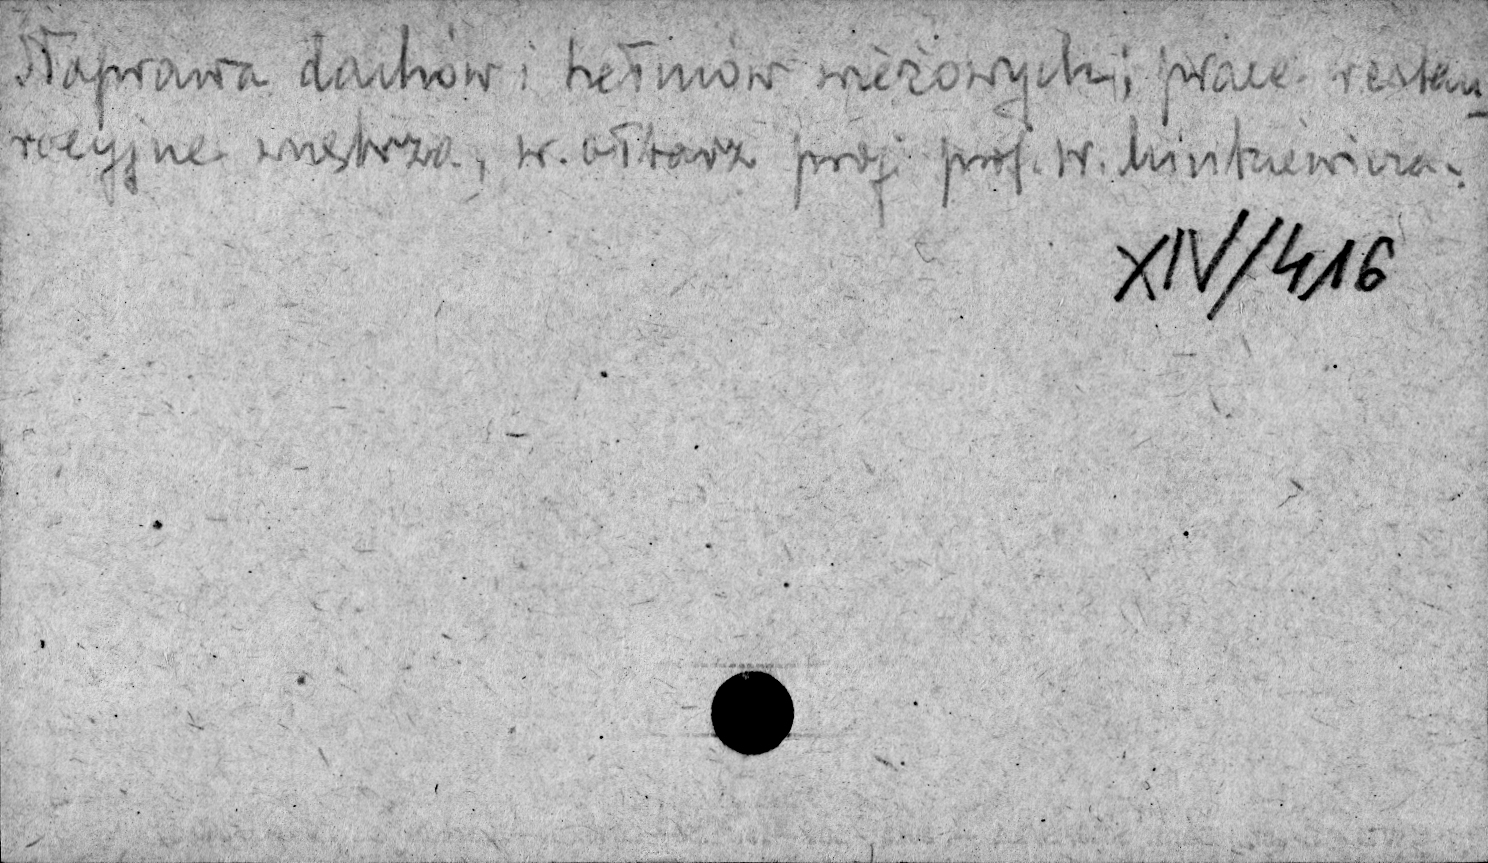 Naprawa dachów i hełmów wieżowych; prace restau-
racyjne wnętrza, w. ołtarz proj. prof. W. Minkiewicza.
XIV/416